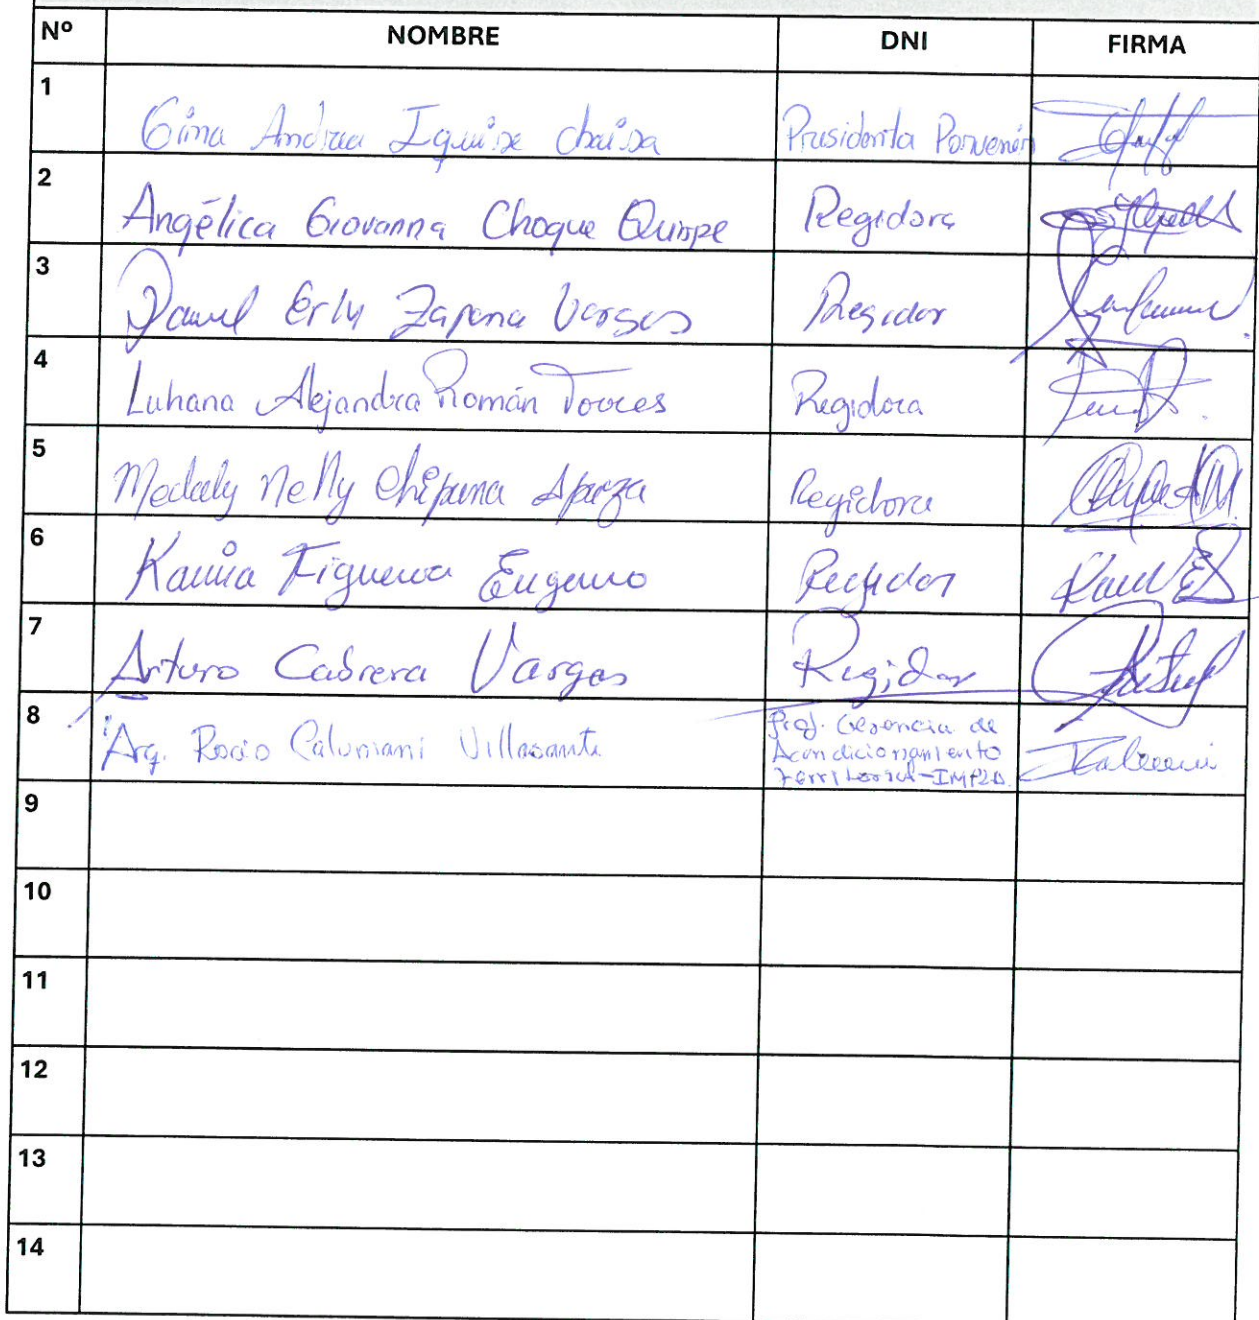 Nº NOMBRE DNI FIRMA
1 Gina Andrea Iquise Presidenta Porvenir
2 Angélica Giovanna Choque Quispe Regidora
3 Erly Zapana Vargas Regidor
4 Luhana Alejandra Román Torres Regidora
5 Medaly Nelly Chipana Apaza Regidora
6 Figueroa Eugenio Regidor
7 Arturo Cabrera Vargas Regidor
8 Arq. Rocio Villasante Prof. Gerencia de
Acondicionamiento
Territorial-
9
10
11
12
13
14